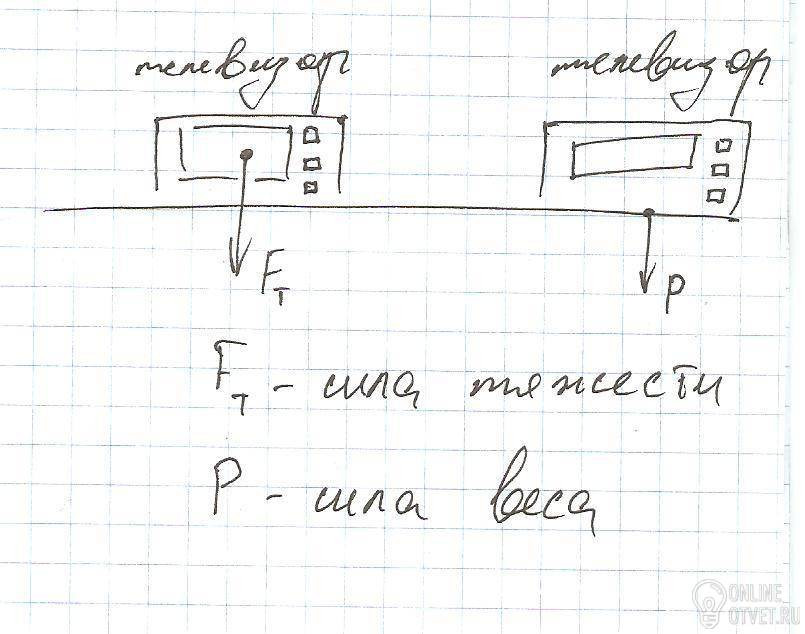 телевизор телевизор
Fт
P
Fт - сила тяжести
P - сила веса
ONLINE
OTVET.RU